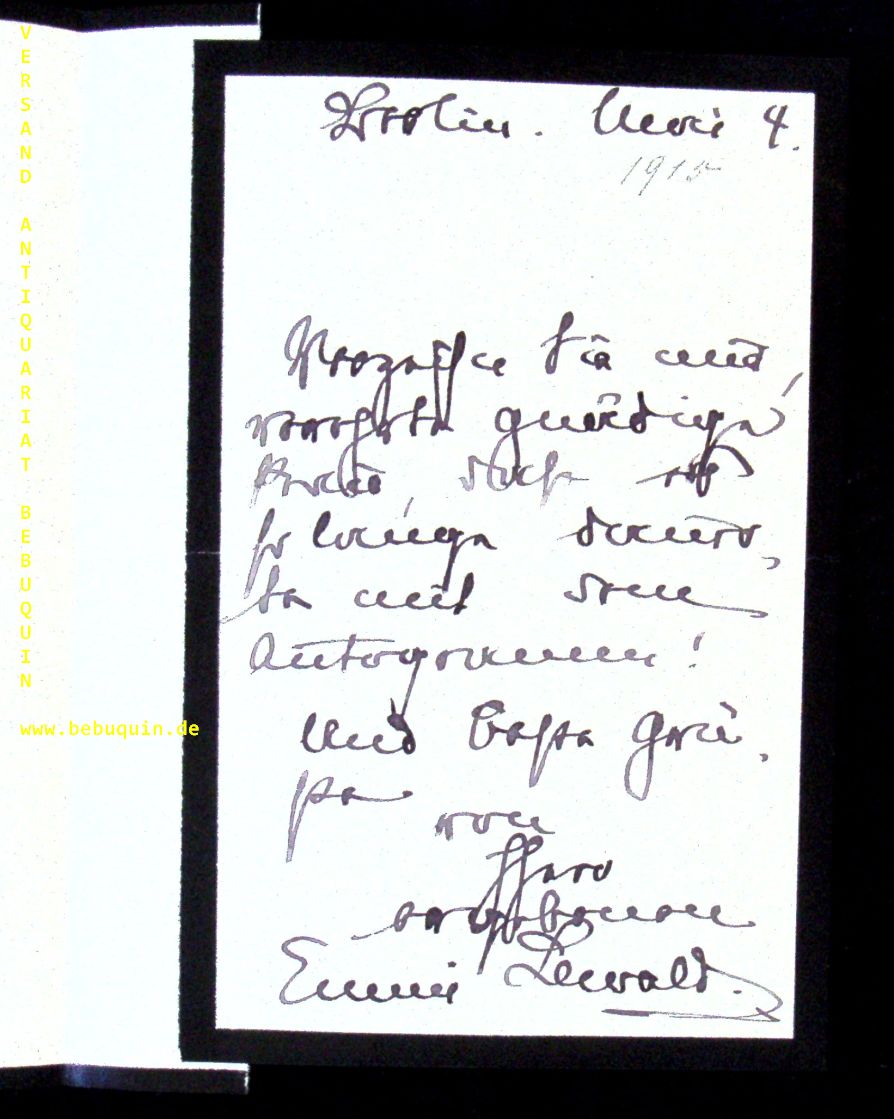 VERSAND ANTIQUARIAT BEBUQUIN
www.bebuquin.de
Berlin. Mai 4.
1915
Verzeihen Sie mir,
verehrte gnädige
Frau, daß es
so lange dauer,
te mit dem
Autogramm!
Und beste Grü,
ße
von
Ihrer
ergebenen
Emmi Lewald.